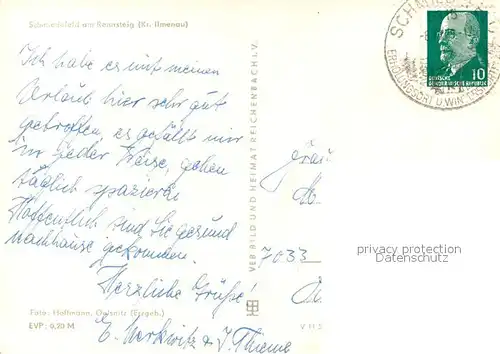 Schmiedefeld am Rennsteig (Kr. Ilmenau)
Ich habe es mit meinen
Urlaub hier sehr gut
getroffen, es gefällt mir
in jeder Weise, gehen
täglich spazieren
Hoffentlich sind Sie gesund
nachhause gekommen.
Herzliche Grüße!
E. Merkwitz & J. Thieme
Foto: Hoffmann, Oelsnitz (Erzgeb.)
EVP: 0,20 M
VEB BILD UND HEIMAT REICHENBACH I. V.
V 11 5
Frau
7033
SCHMIEDEF
ERHOLUNGSORT U. WIN
DEUTSCHE
DEMOKRATISCHE REPUBLIK
10
privacy protection